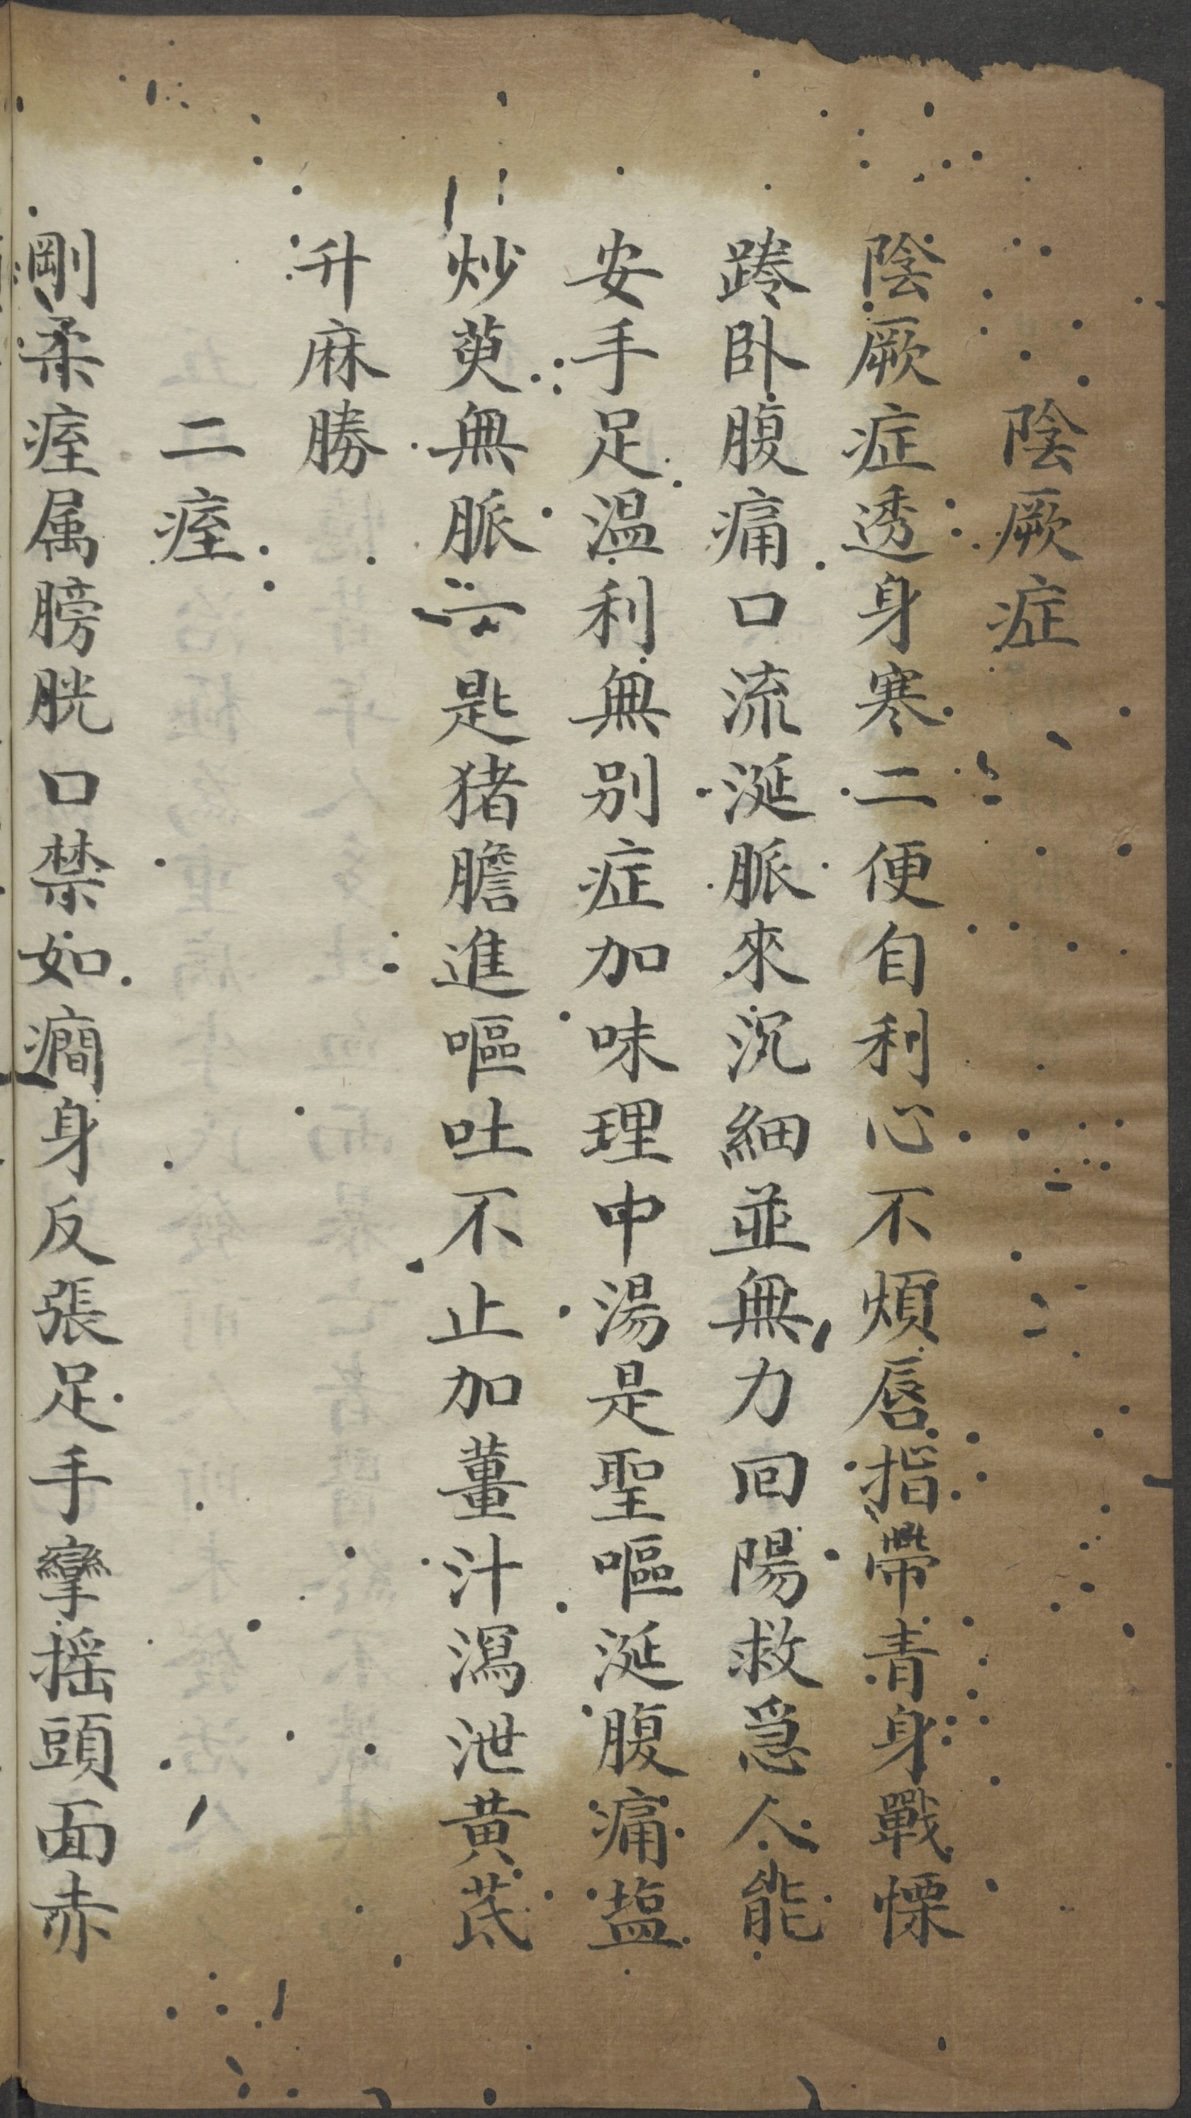 陰厥症
陰厥症透身寒二便自利心不煩唇指帶青身戰慄
踡臥腹痛口流涎脈來沉細並無力回陽救急人能
安手足温利無別症加味理中湯是聖嘔涎腹痛塩
炒萸無脈一匙猪膽進嘔吐不止加薑汁瀉泄黄芪
升麻勝
二痓
剛柔痓属膀胱口禁如癇身反張足手攣摇頭面赤